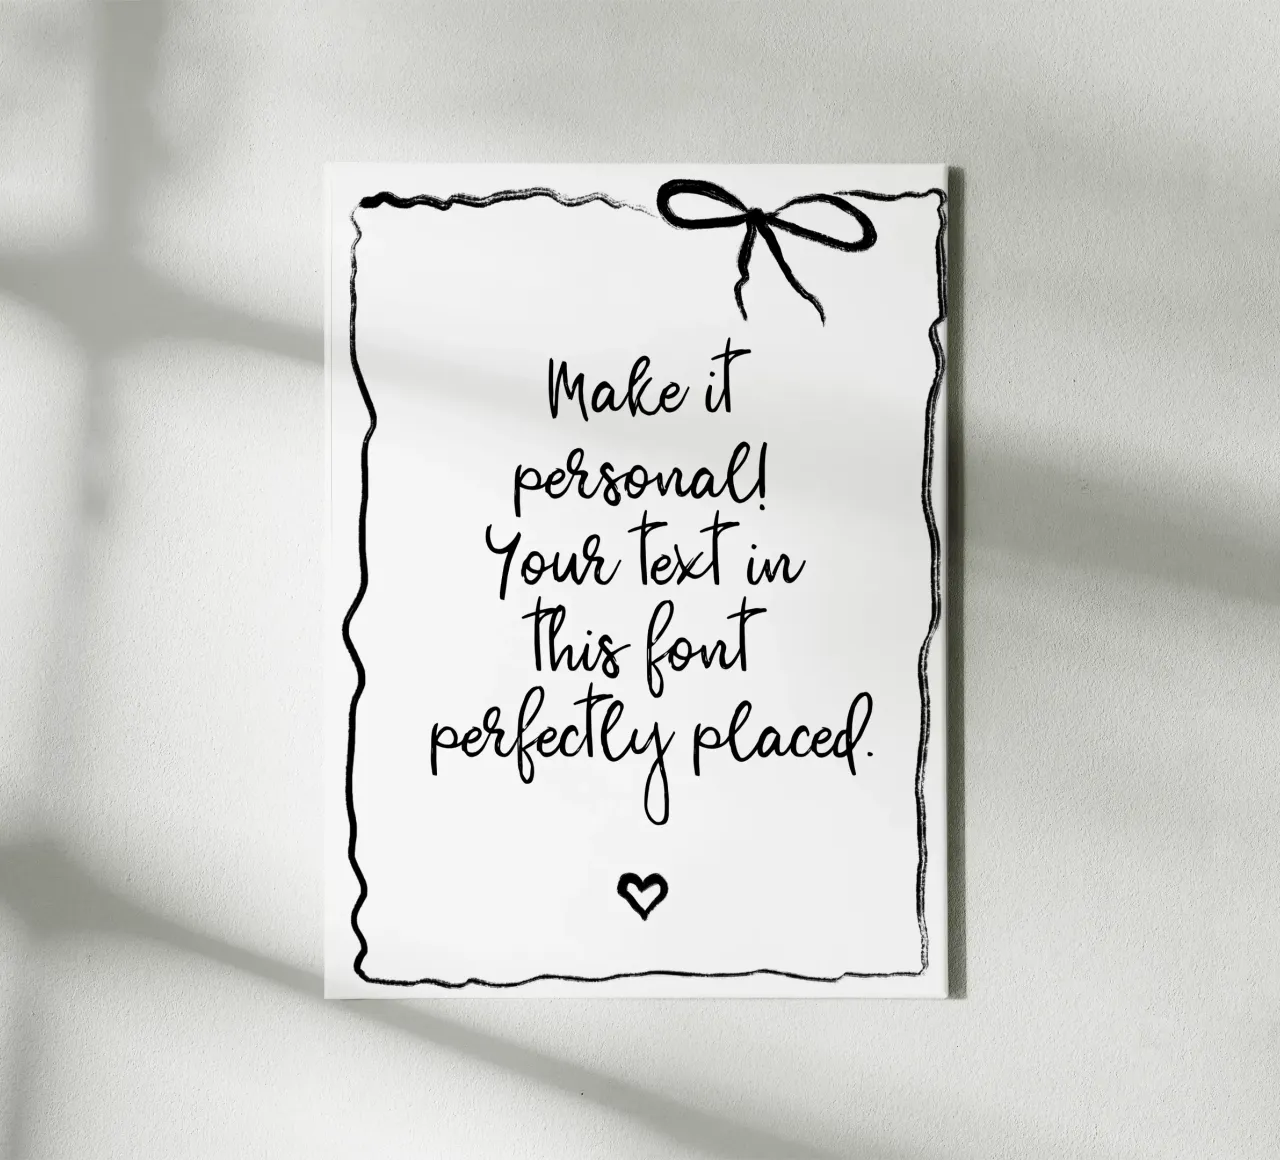 Make it
personal!
Your text in
this font
perfectly placed.